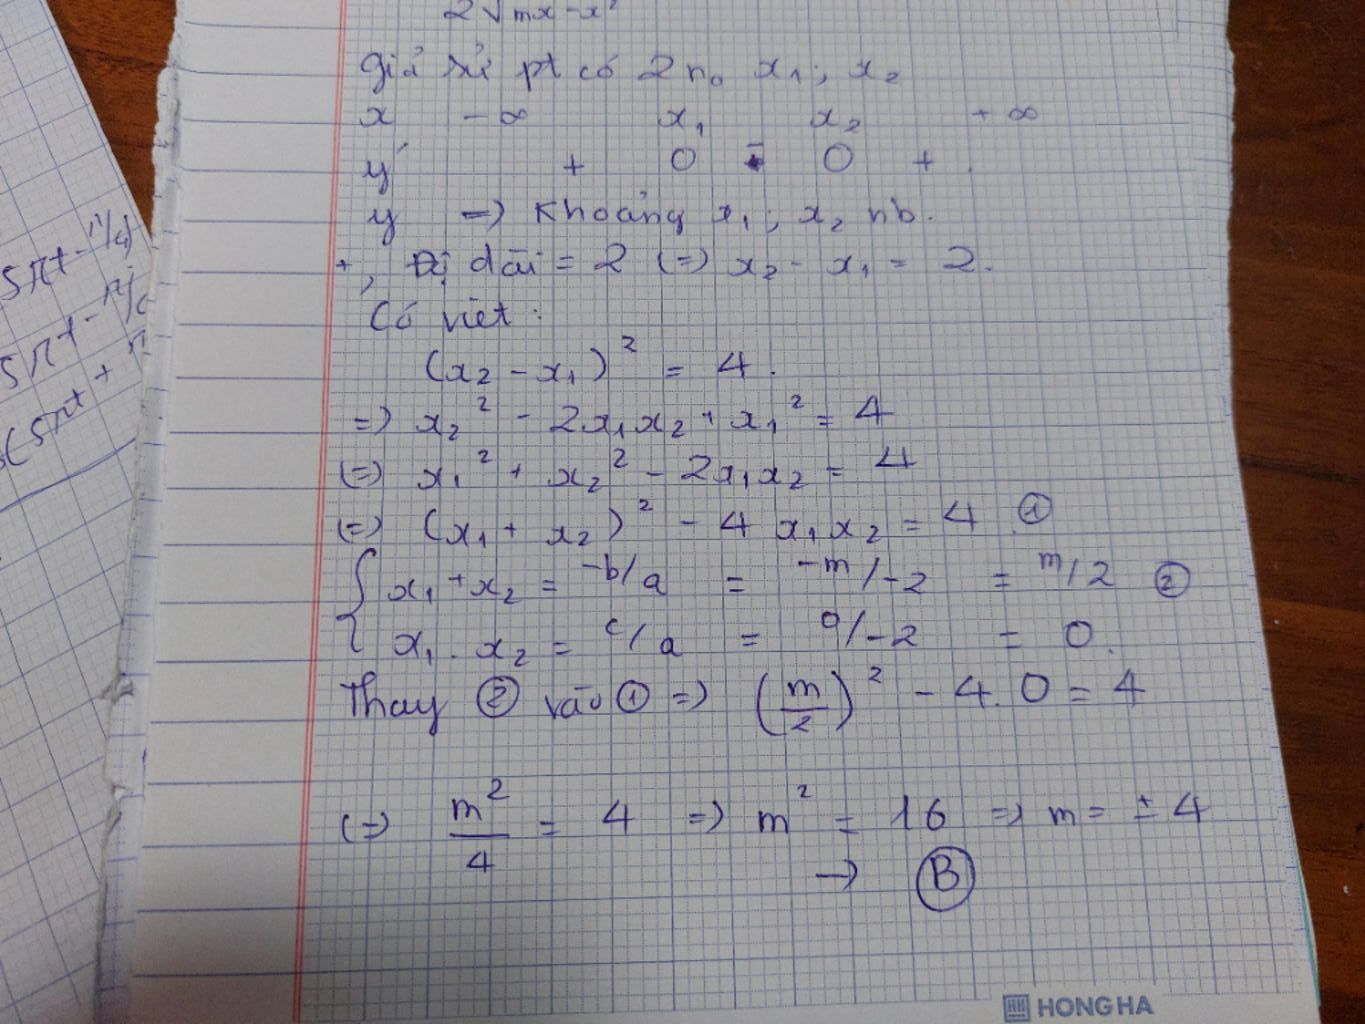 2√mx-x²
giả sử pt có 2 no x₁; x₂
x -∞ x₁ x₂ +∞
y' + 0 - 0 +
y => Khoảng x₁; x₂ nb.
+, Độ dài = 2 (=) x₂ - x₁ = 2.
Có viet:
(x₂ - x₁)² = 4.
=) x₂² - 2x₁x₂ + x₁² = 4
(=) x₁² + x₂² - 2x₁x₂ = 4
(=) (x₁ + x₂)² - 4 x₁x₂ = 4 ①
{ x₁ + x₂ = -b/a = -m/-2 = m/2 ②
x₁ . x₂ = c/a = 0/-2 = 0.
Thay ② vào ① =) (m/2)² - 4.0 = 4
(=) m²/4 = 4 =) m² = 16 =) m = ±4
→ Ⓑ
HH HONG HA
5πt - π/4)
5πt - π/6
(5πt + π